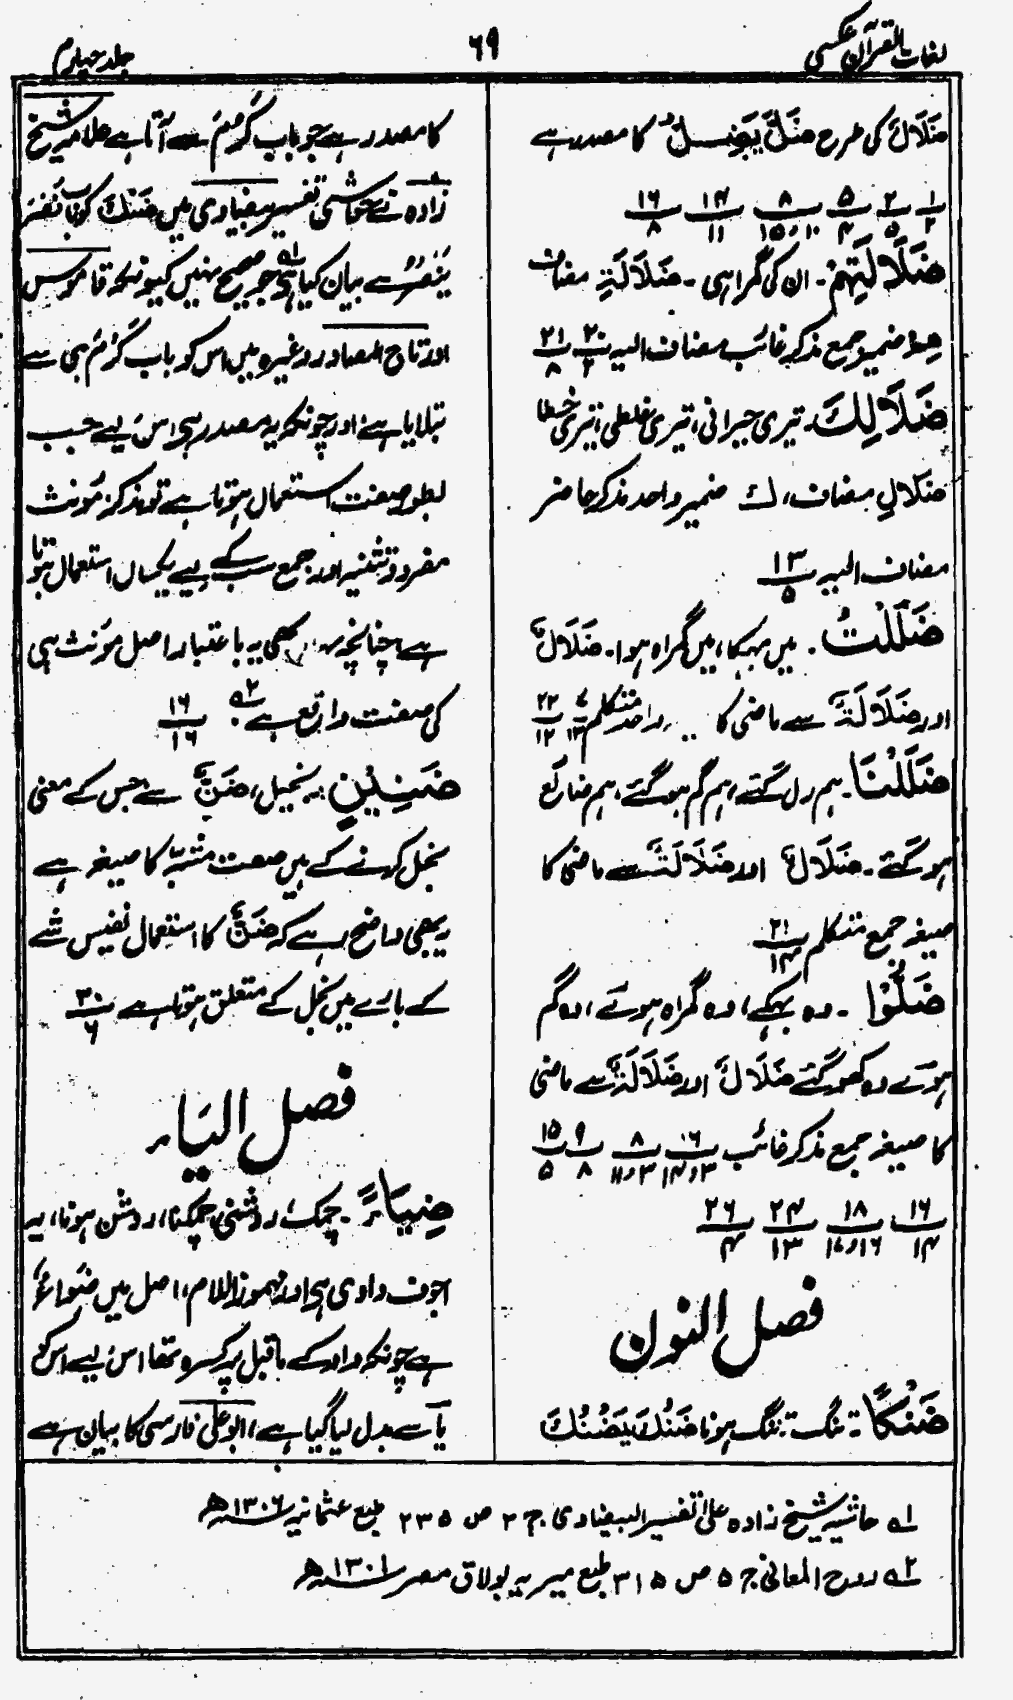 لغات القرآن عکسی
۶۹
جلد چہارم
ضَلَالٌ کی طرح ضَلَّ یَضِلُّ کا مصدر ہے
۱/۲ ۲/۵ ۵/۴ ۸/۱۰،۱۵ ۱۴/۱۱ ۱۶/۸
ضَلَالَتِهِمْ۔ ان کی گمراہی۔ ضَلَالَةِ مضاف
هِمْ ضمیر جمع مذکر غائب مضاف الیہ ۲۰/۲ ۲۱/۸
ضَلَالِكَ تیری حیرانی، تیری غلطی، تیری خطا
ضَلَالِ مضاف، ك ضمیر واحد مذکر حاضر
مضاف الیہ ۱۳/۵
ضَلَلْتُ۔ میں بہکا، میں گمراہ ہوا۔ ضَلَالٌ
اور ضَلَالَةٌ سے ماضی کا واحد متکلم ۷/۱۳ ۲۲/۱۲
ضَلَلْنَا۔ ہم رل گئے، ہم گم ہوگئے، ہم ضائع
ہو گئے۔ ضَلَالٌ اور ضَلَالَةٌ سے ماضی کا
صیغہ جمع متکلم ۲۱/۱۴
ضَلُّوْا۔ وہ بہکے، وہ گمراہ ہوئے، وہ گم
ہوئے وہ کھو گئے ضَلَالٌ اور ضَلَالَةٌ سے ماضی
کا صیغہ جمع مذکر غائب ۱۶/۳،۱۴ ۸/۳،۱۱ ۹/۸ ۱۵/۵
۱۶/۱۴ ۱۸/۱۶،۱۷ ۲۴/۱۳ ۲۶/۴
فصل النون
ضَنْكًا۔ تنگ۔ تنگ ہونا ضَنُكَ یَضْنُكُ
کا مصدر ہے جو باب کَرُمَ سے آتا ہے علامہ شیخ
زادہ نے حواشی تفسیر بیضاوی میں ضَنْك کو باب نَصَرَ
یَنْصُرُ سے بیان کیا ہے ۱؎ جو صحیح نہیں کیونکہ قاموس
اور تاج المصادر وغیرہ میں اس کو باب کَرُمَ ہی سے
بتلایا ہے اور چونکہ یہ مصدر ہی اس لیے جب
بطور صفت استعمال ہوتا ہے تو مذکر مؤنث
مفرد و تثنیہ اور جمع سب کے لیے یکساں استعمال ہوتا
ہے چنانچہ یہاں بھی یہ باعتبار اصل مؤنث ہی
کی صفت واقع ہے ۲؎ ۱۶/۱۶
ضَنِيْنٍ۔ بخیل، ضَنٌّ سے جس کے معنی
بخل کرنے کے ہیں صفت مشبہ کا صیغہ ہے
یہ بھی واضح رہے کہ ضَنٌّ کا استعمال نفیس شے
کے بارے میں بخل کے متعلق ہوتا ہے ۳۰/۶
فصل الیاء
ضِيَاءً۔ چمک، روشنی، چمکنا، روشن ہونا، یہ
اجوف واوی ہی اور مہموز اللام، اصل میں ضِوَاءٌ
ہے چونکہ واو کے ماقبل پر کسرہ تھا اس لیے اس کو
یا سے بدل لیا گیا ہے، ابو علی فارسی کا بیان ہے
۱؎ حاشیہ شیخ زادہ علی تفسیر البیضاوی ج ۲ ص ۲۳۵ طبع عثمانیہ ۱۳۰۶ھ
۲؎ روح المعانی ج ۵ ص ۳۱۵ طبع میریہ بولاق مصر ۱۳۰۱ھ